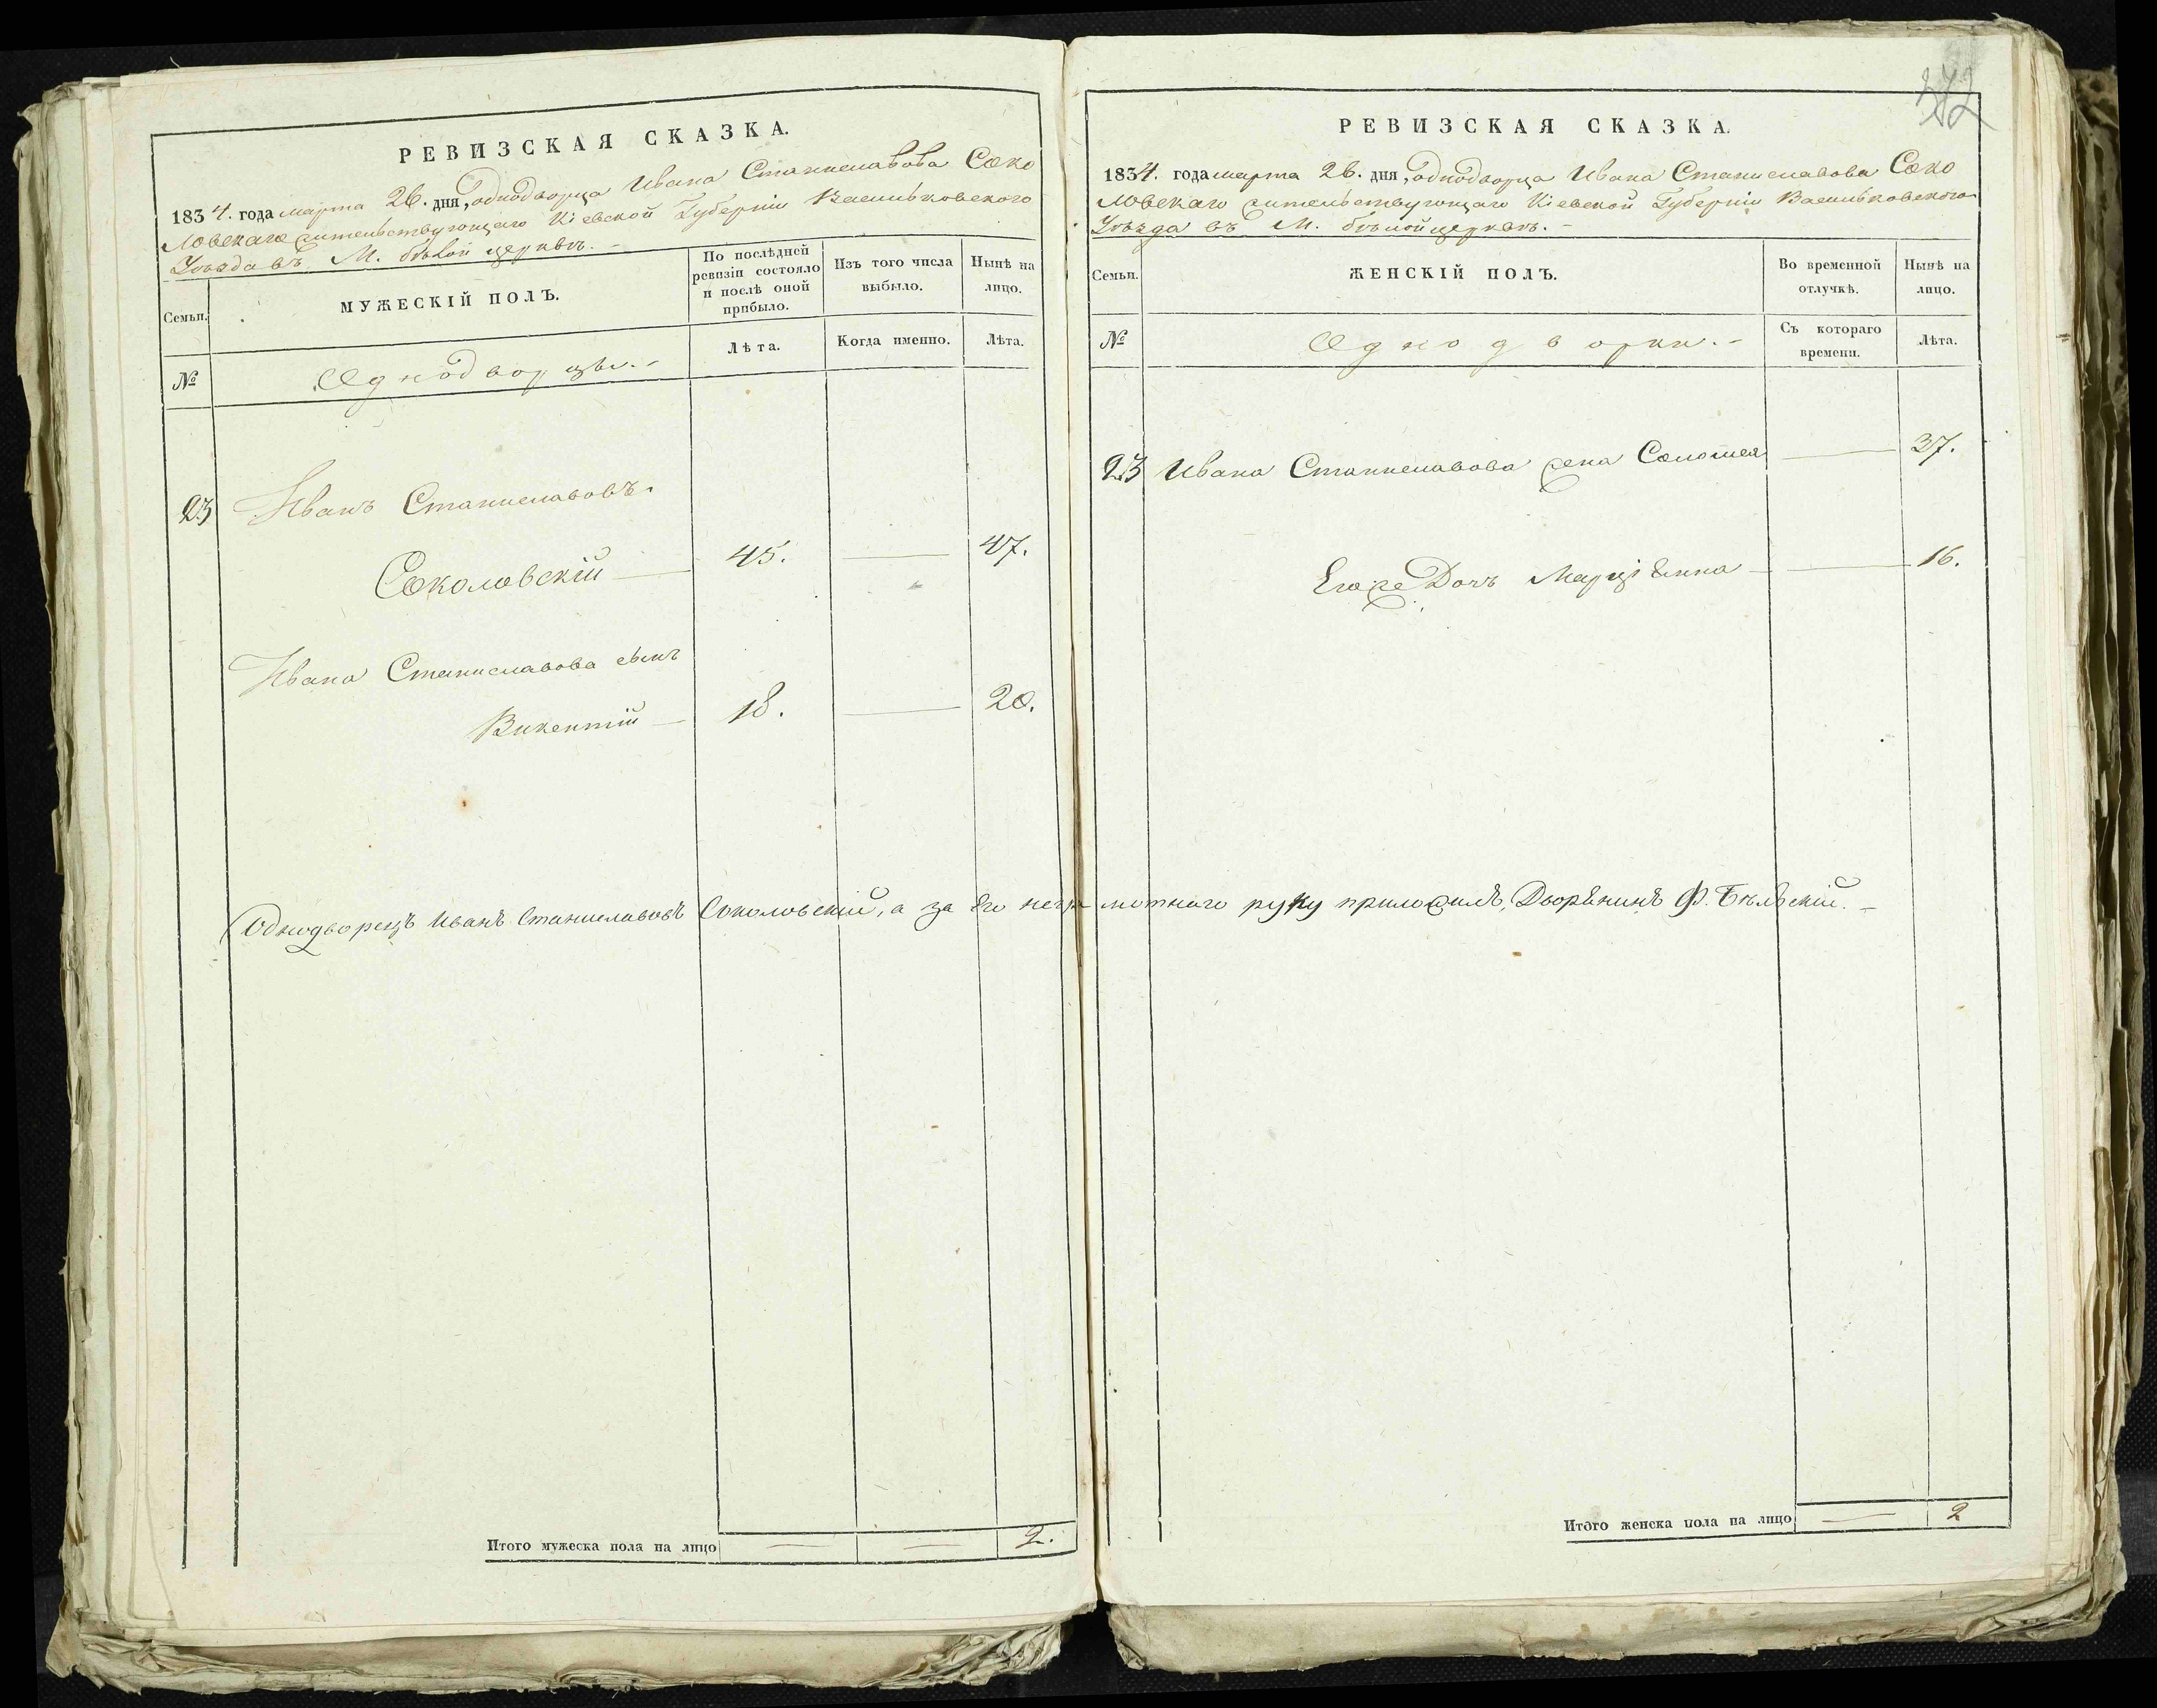 РЕВИЗСКАЯ СКАЗКА.
1834. года марта 26. дня, однодворца Ивана Станиславова Соко
ловскаго жительствующаго Кіевской Губерніи Васильковского
Уѣзда въ М. бѣлой церквѣ. -
Семьи.
МУЖЕСКІЙ ПОЛЪ.
По послѣдней ревизіи состояло и послѣ оной прибыло.
Изъ того числа выбыло.
Нынѣ на лицо.
№
Однодворцы. -
Лѣта.
Когда именно.
Лѣта.
23 Иванъ Станиславовъ
Соколовскій — 45. — 47.
Ивана Станиславова сынъ
Викентій — 18. — 20.
Однодворецъ Иванъ Станиславовъ Соколовскій, а за его неграмотнаго руку приложилъ, Дворянинъ Ф. Бѣлѣскій. -
Итого мужеска пола на лицо — — 2.
272
РЕВИЗСКАЯ СКАЗКА.
1834. года марта 26. дня, однодворца Ивана Станиславова Соко
ловскаго жительствующаго Кіевской Губерніи Васильковского
Уѣзда въ М. бѣлой церквѣ. -
Семьи.
ЖЕНСКІЙ ПОЛЪ.
Во временной отлучкѣ.
Нынѣ на лицо.
№
Однодворки. -
Съ котораго времени.
Лѣта.
23 Ивана Станиславова жена Соломея — 37.
Его же Дочь Марціянна — 16.
Итого женска пола на лицо — 2